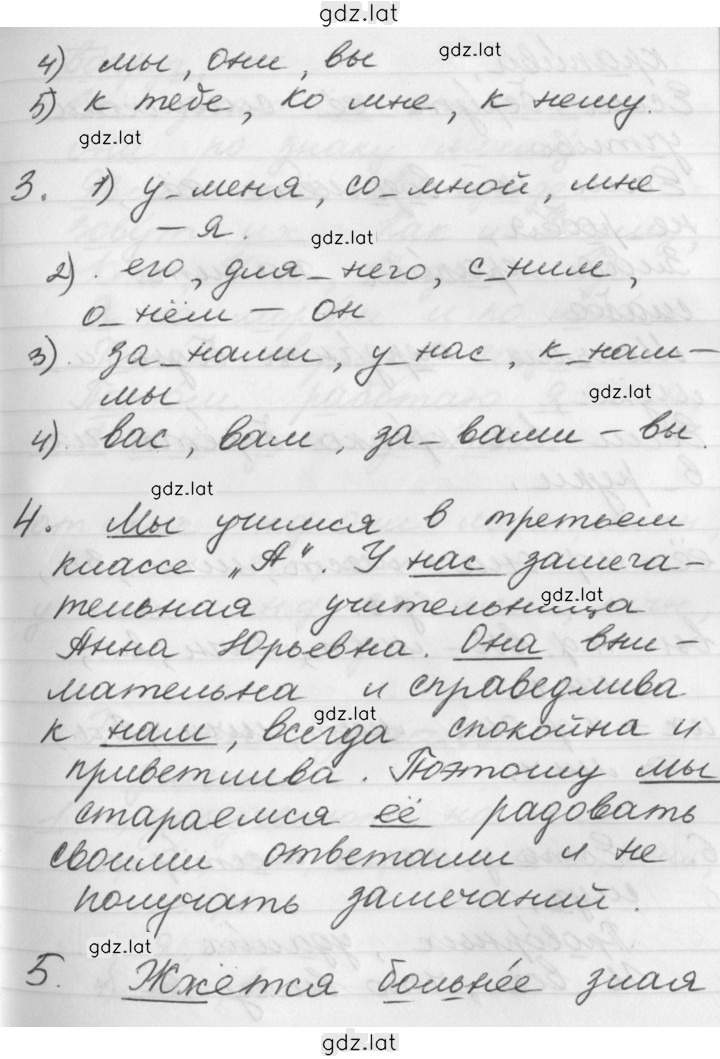 gdz.lat
4) мы, они, вы gdz.lat
5) к тебе, ко мне, к нему.
gdz.lat
3. 1) у_меня, со_мной, мне
– я. gdz.lat
2). его, для_него, с_ним,
о_нём – он
3). за_нами, у_нас, к_нам –
мы gdz.lat
4). вас, вам, за_вами – вы.
gdz.lat
4. Мы учимся в третьем
классе „А“. У нас замеча-
gdz.lat
тельная учительница
Анна Юрьевна. Она вни-
мательна и справедлива
gdz.lat
к нам, всегда спокойна и
приветлива. Поэтому мы
стараемся её радовать
своими ответами и не
получать замечаний.
gdz.lat
5. Жжётся больнее злая
gdz.lat